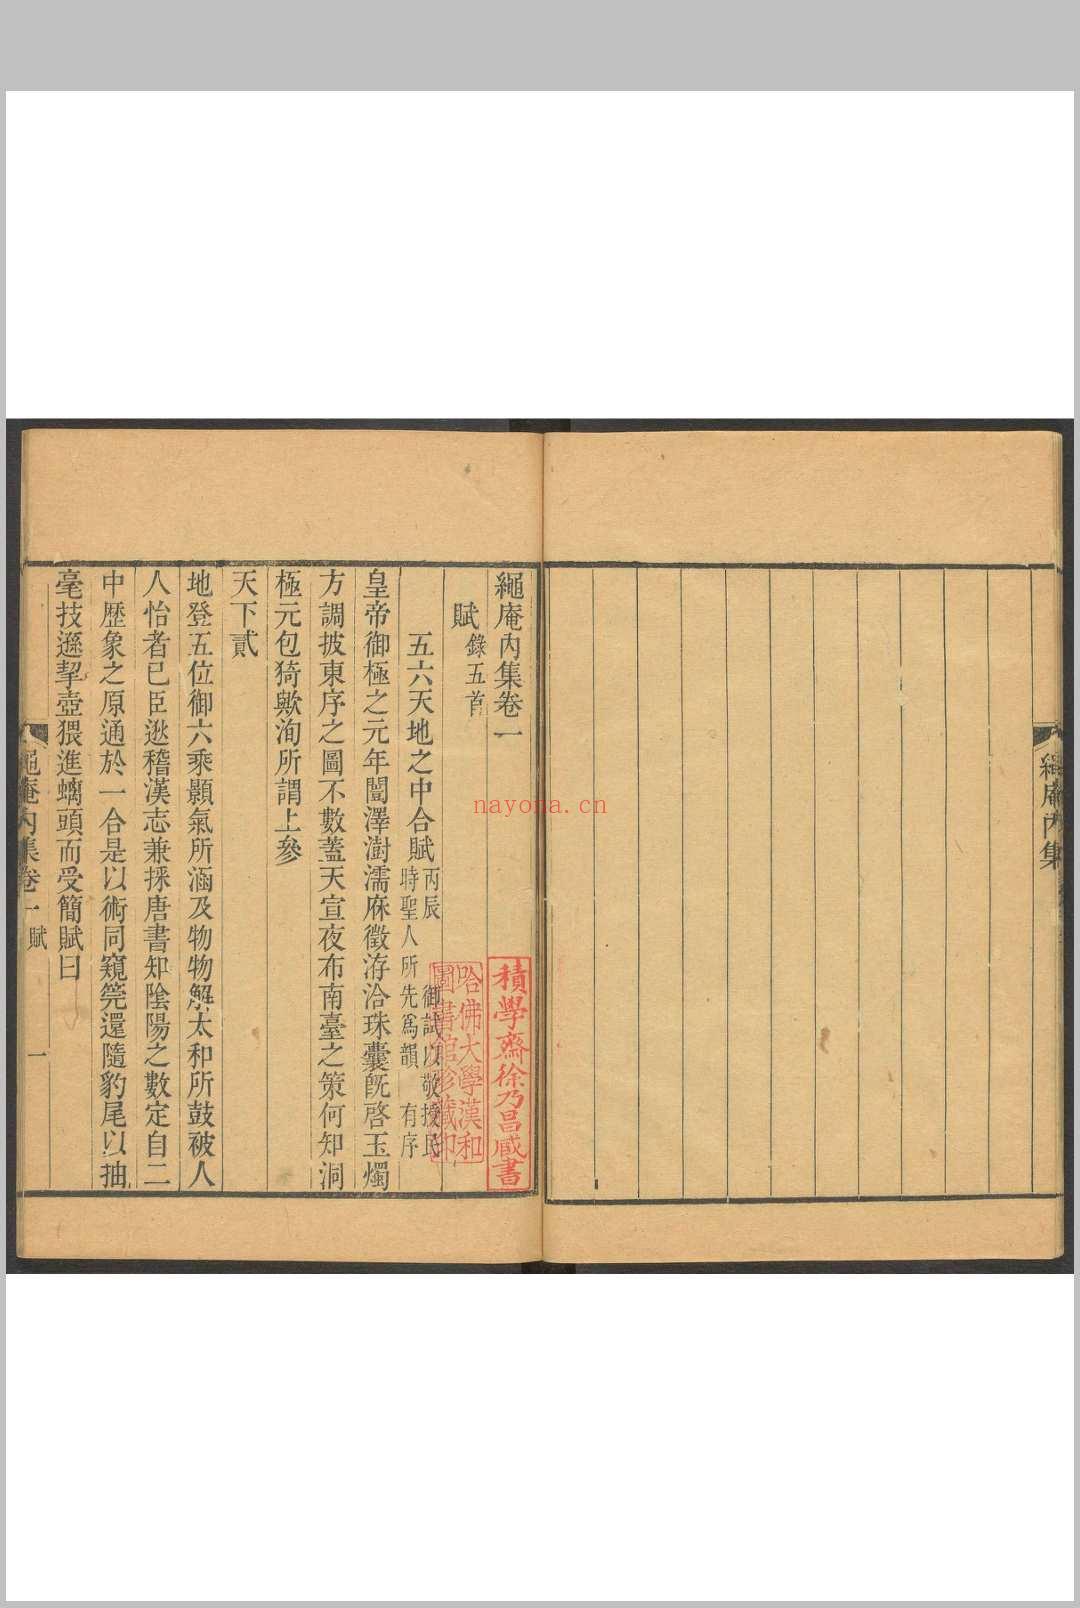 繩庵內集
繩庵內集卷一
賦 錄五首
五六天地之中合賦 丙辰 御試以敬授民
時聖人所先爲韻 有序
皇帝御極之元年闓澤澍濡庥徵洊洽珠囊旣啓玉燭
方調披東序之圖不數蓋天宣夜布南臺之策何知洞
極元包猗歟洵所謂上參
天下貳
地登五位御六乘顥氣所涵及物物解太和所鼓被人
人怡者已臣逖稽漢志兼採唐書知陰陽之數定自二
中歷象之原通於一合是以術同窺筦還隨豹尾以抽
毫技遜挈壺猥進螭頭而受簡賦曰
繩庵內集卷一 賦 一
積學齋徐乃昌藏書
哈佛大學漢和
圖書館珍藏印
nayona.cn